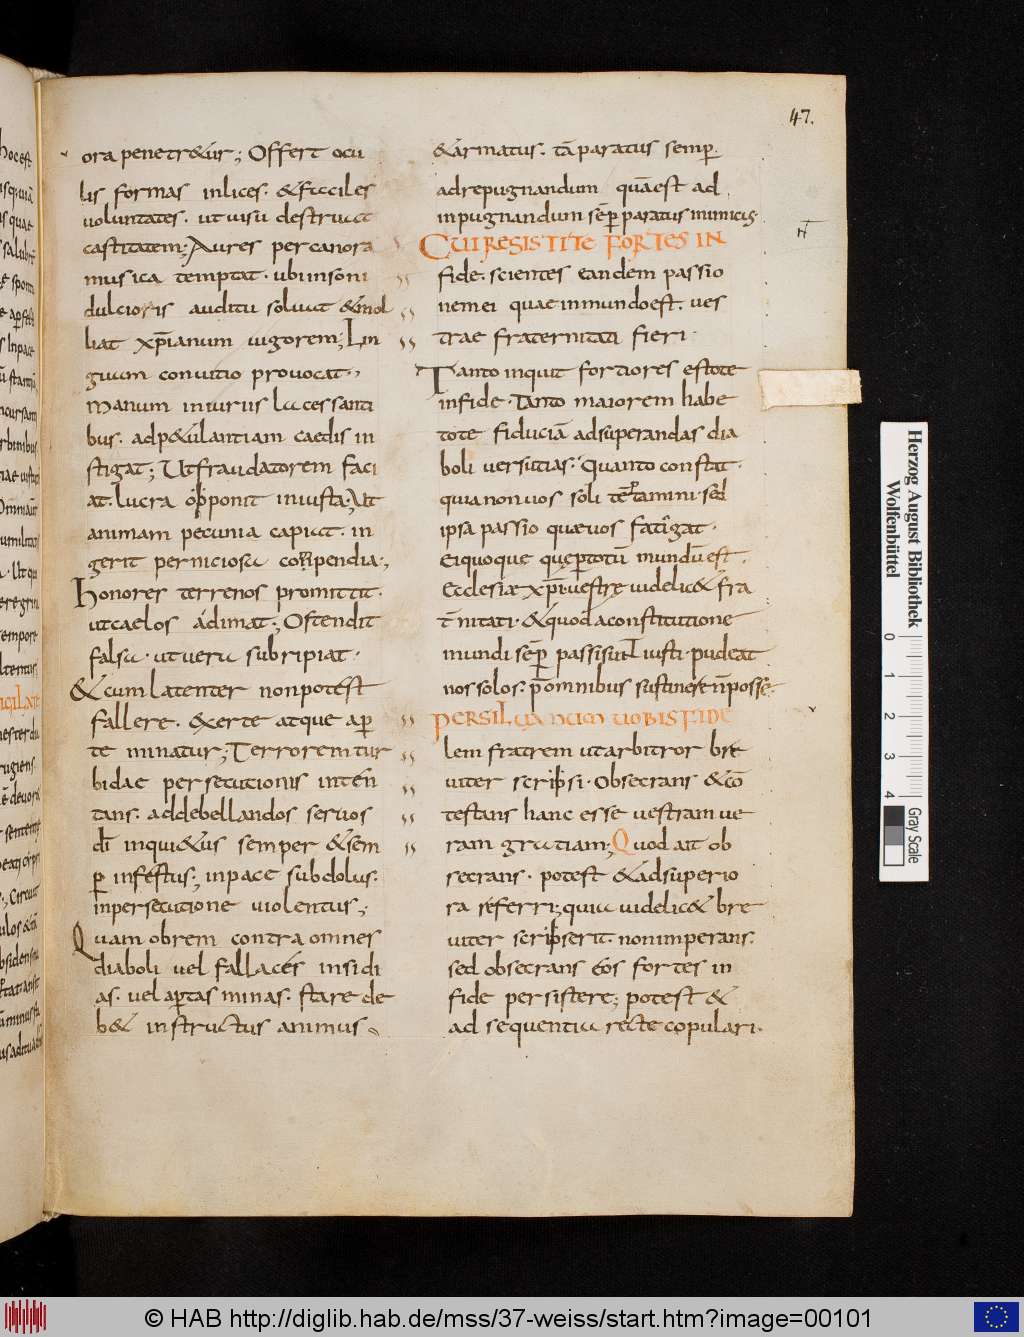 47.
ora penetr&ur; Offert ocu
lis formas inlices. & faciles
uoluntates. ut uisu destruat
castitatem; Aures per canora
musica temptat. ubi insoni
dulcioris auditu soluat & mol
liat xp̅ianum uigorem; Lin
guam conuitio prouocat;
manum iniuriis lacessanti
bus. ad p&ulantiam caedis in
stigat; Ut fraudatorem faci
at. lucra opponit iniusta; Ut
animam pecunia capiat. in
gerit perniciosa compendia;
Honores terrenos promittit.
ut caelos adimat; Ostendit
falsa. ut uera subripiat.
& cum latenter non potest
fallere. & erte atque ap̅
te minatur; Terrorem tur
bidae persecutionis inten
tans. ad debellandos seruos
dī inqui&us semper & sem
p̅ infestus; in pace subdolus.
in persecutione uiolentus;
Quam obrem contra omnes
diaboli uel fallaces insidi
as. uel ap̅tas minas. stare de
b& instructus animus
& armatus. tā paratus semp̅.
ad repugnandum quā est ad
inpugnandum sēp̅ paratus inimicus.
CUI RESISTITE FORTES IN
fide. scientes eandem passio
nem ei quae in mundo est. ues
trae fraternitati fieri.
Tanto inquit fortiores estote
in fide. Tanto maiorem habe
tote fiduciā ad superandas dia
boli uersutias. Quanto constat.
quia non uos soli temtamini. sed
ipsa passio quae uos fatigat.
eiquoque que p̅ totū mundū est.
Ecclesiae xp̅i uestre uidelic& fra
t̅nitati. & quod a constitutione
mundi sēp̅ passi sunt iusti. pudeat
nos solos. p̅ omnibus sustinere n̅ posse.
PER SILUANUM UOBIS FIDE
lem fratrem ut arbitror bre
uiter scripsi. Obsecrans & cō
testans hanc esse uestram ue
ram gratiam; Quod ait ob
secrans. potest & ad superio
ra referri; quia uidelic& bre
uiter scripserit. non imperans.
sed obsecrans eos fortes in
fide persistere; potest &
ad sequentia recte copulari.
Herzog August Bibliothek
Wolfenbüttel
0 1 2 3 4
Gray Scale
© HAB http://diglib.hab.de/mss/37-weiss/start.htm?image=00101